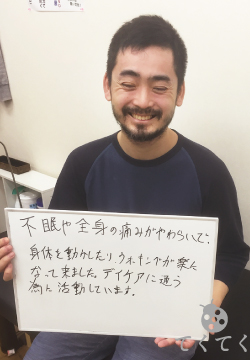 不眠や全身の痛みがやわらいで、
身体を動かしたり、ウォーキングが楽に
なって来ました。デイケアに通う
為に活動しています。
てくてく